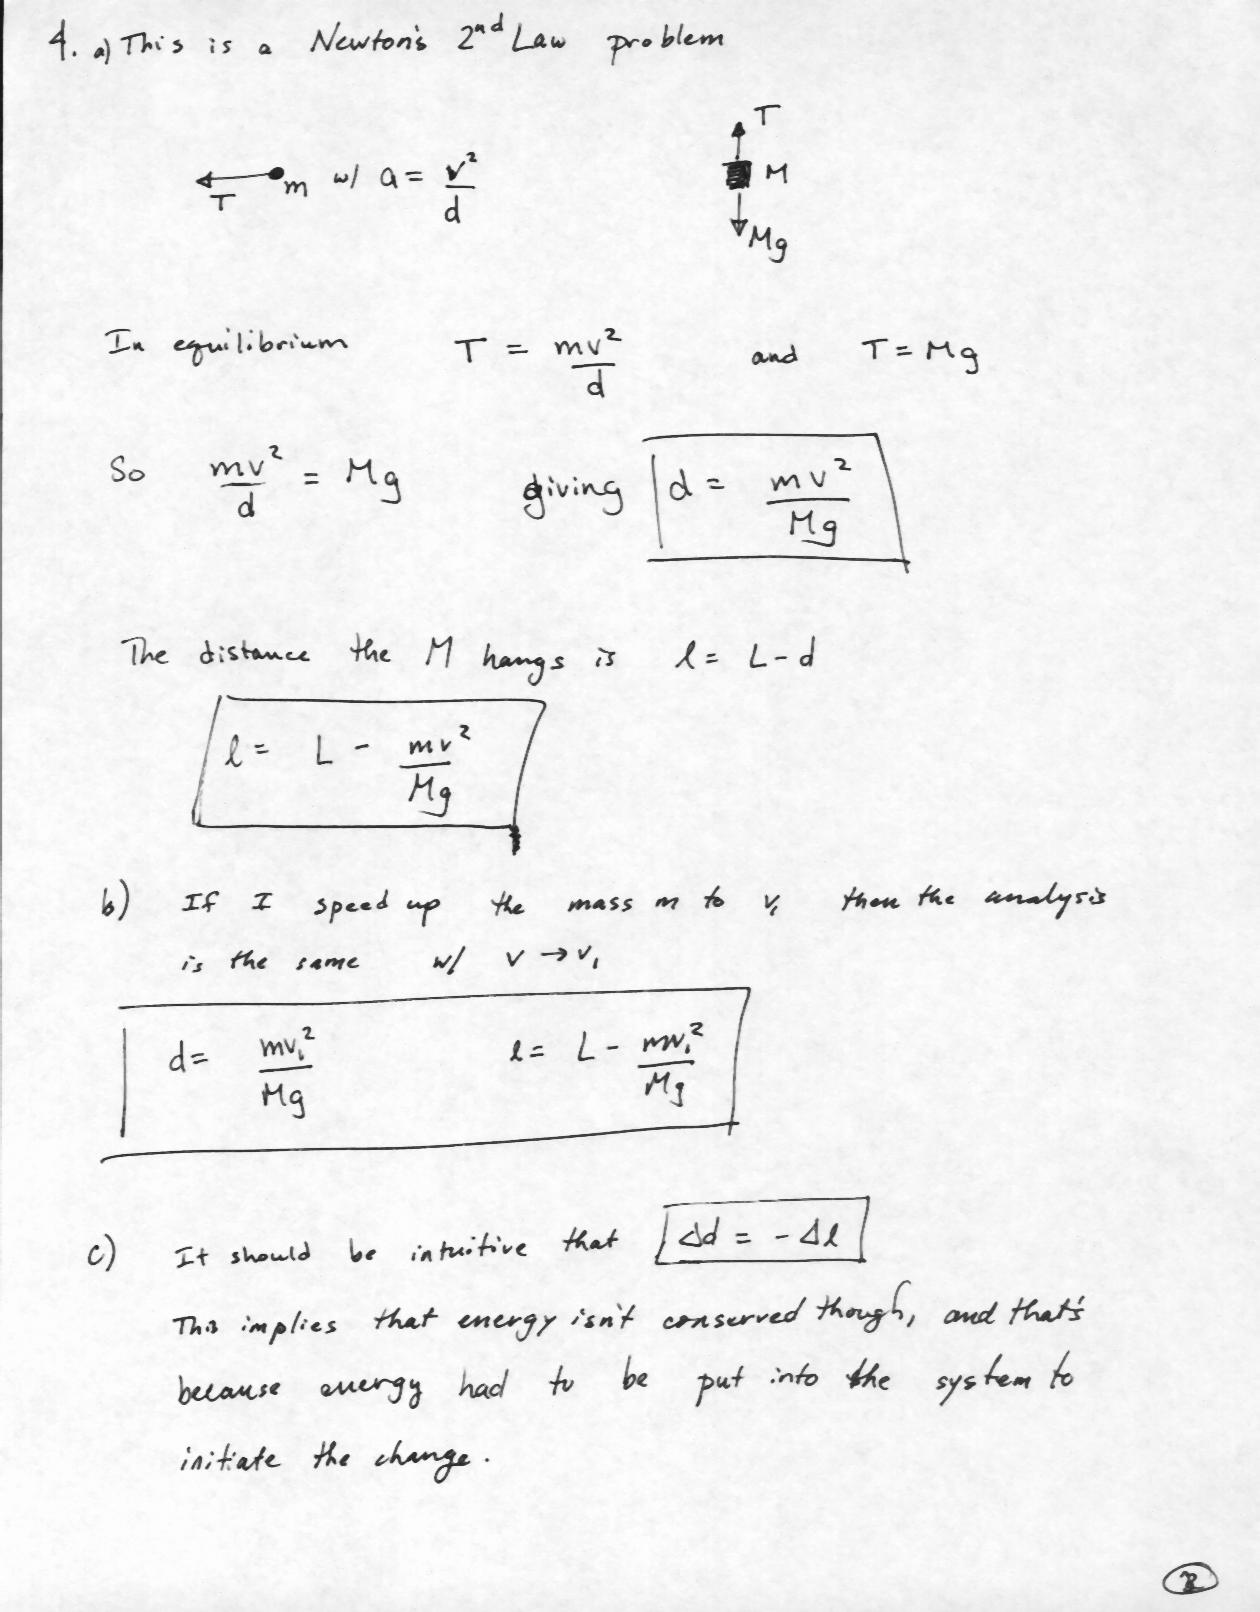 4. a) This is a Newton's 2nd Law problem
T
T m w/ a = v²/d M
Mg
In equilibrium T = mv²/d and T = Mg
So mv²/d = Mg giving d = mv²/Mg
The distance the M hangs is l = L - d
l = L - mv²/Mg
b) If I speed up the mass m to v₁ then the analysis
is the same w/ v → v₁
d = mv₁²/Mg l = L - mv₁²/Mg
c) It should be intuitive that Δd = - Δl
This implies that energy isn't conserved though, and that's
because energy had to be put into the system to
initiate the change.